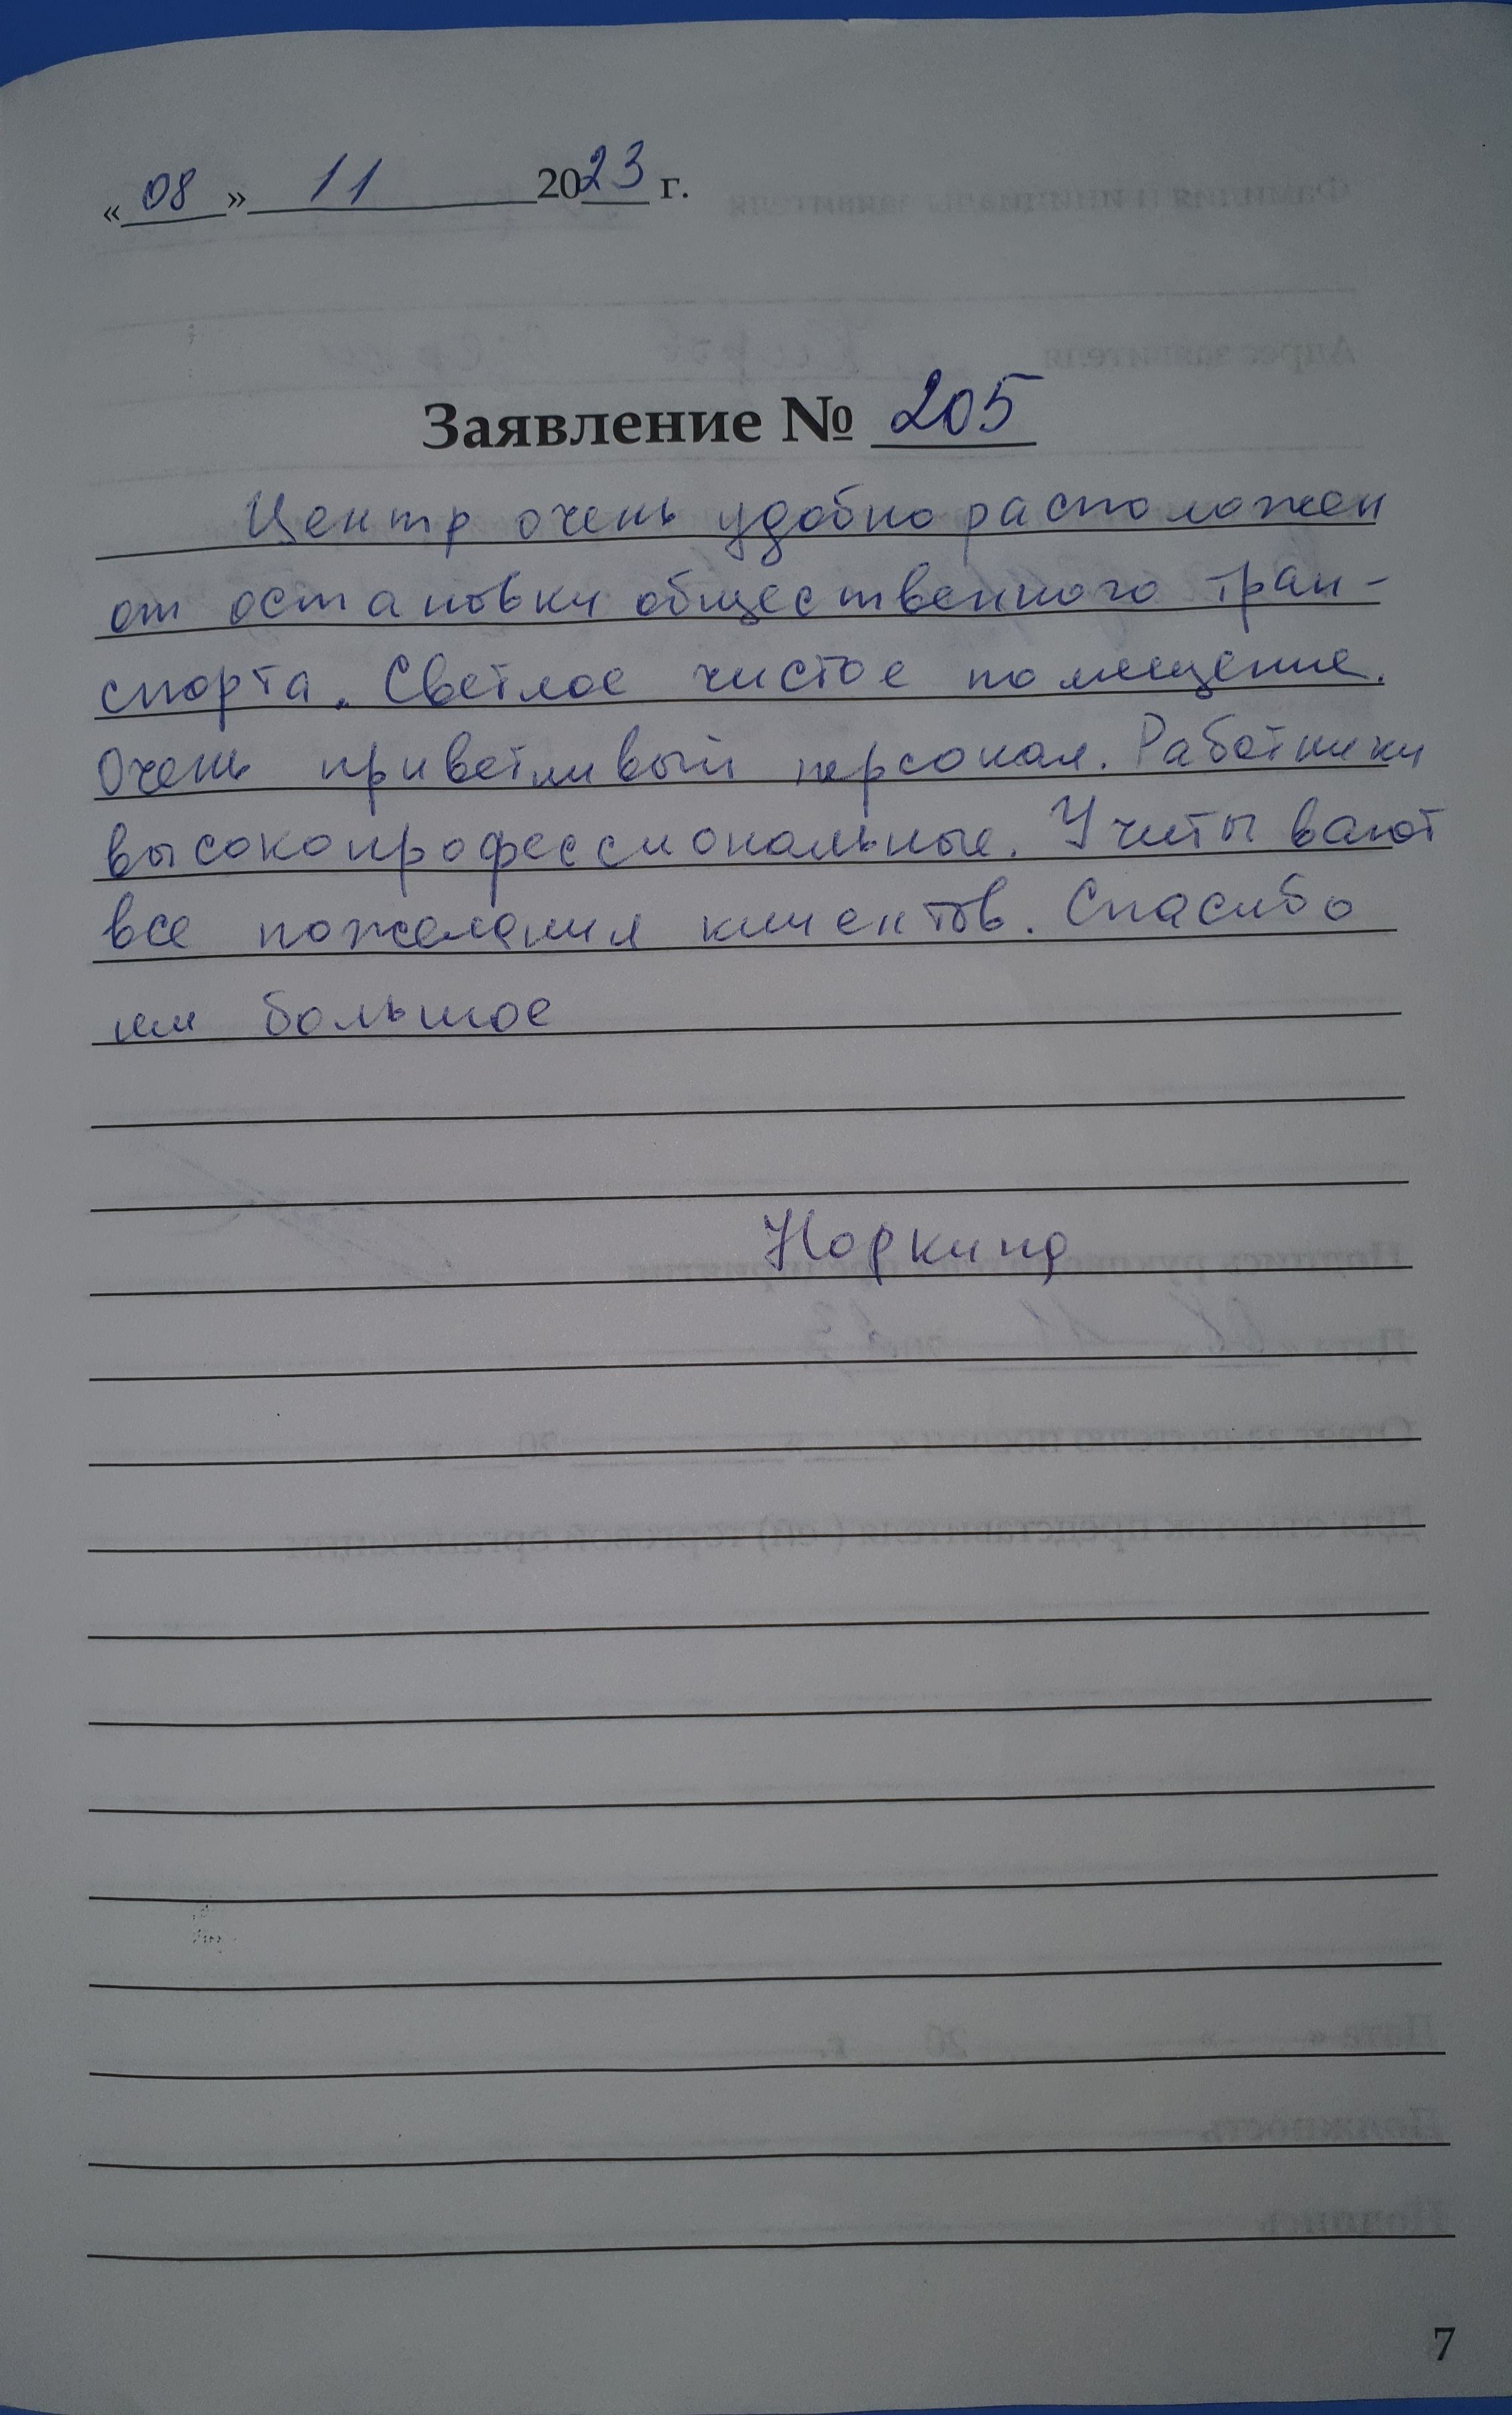 «08» 11 2023 г.
Заявление № 205
Центр очень удобно расположен
от остановки общественного тран-
спорта. Светлое чистое помещение.
Очень приветливый персонал. Работники
высокопрофессиональные. Учитывают
все пожелания клиентов. Спасибо
им большое
7